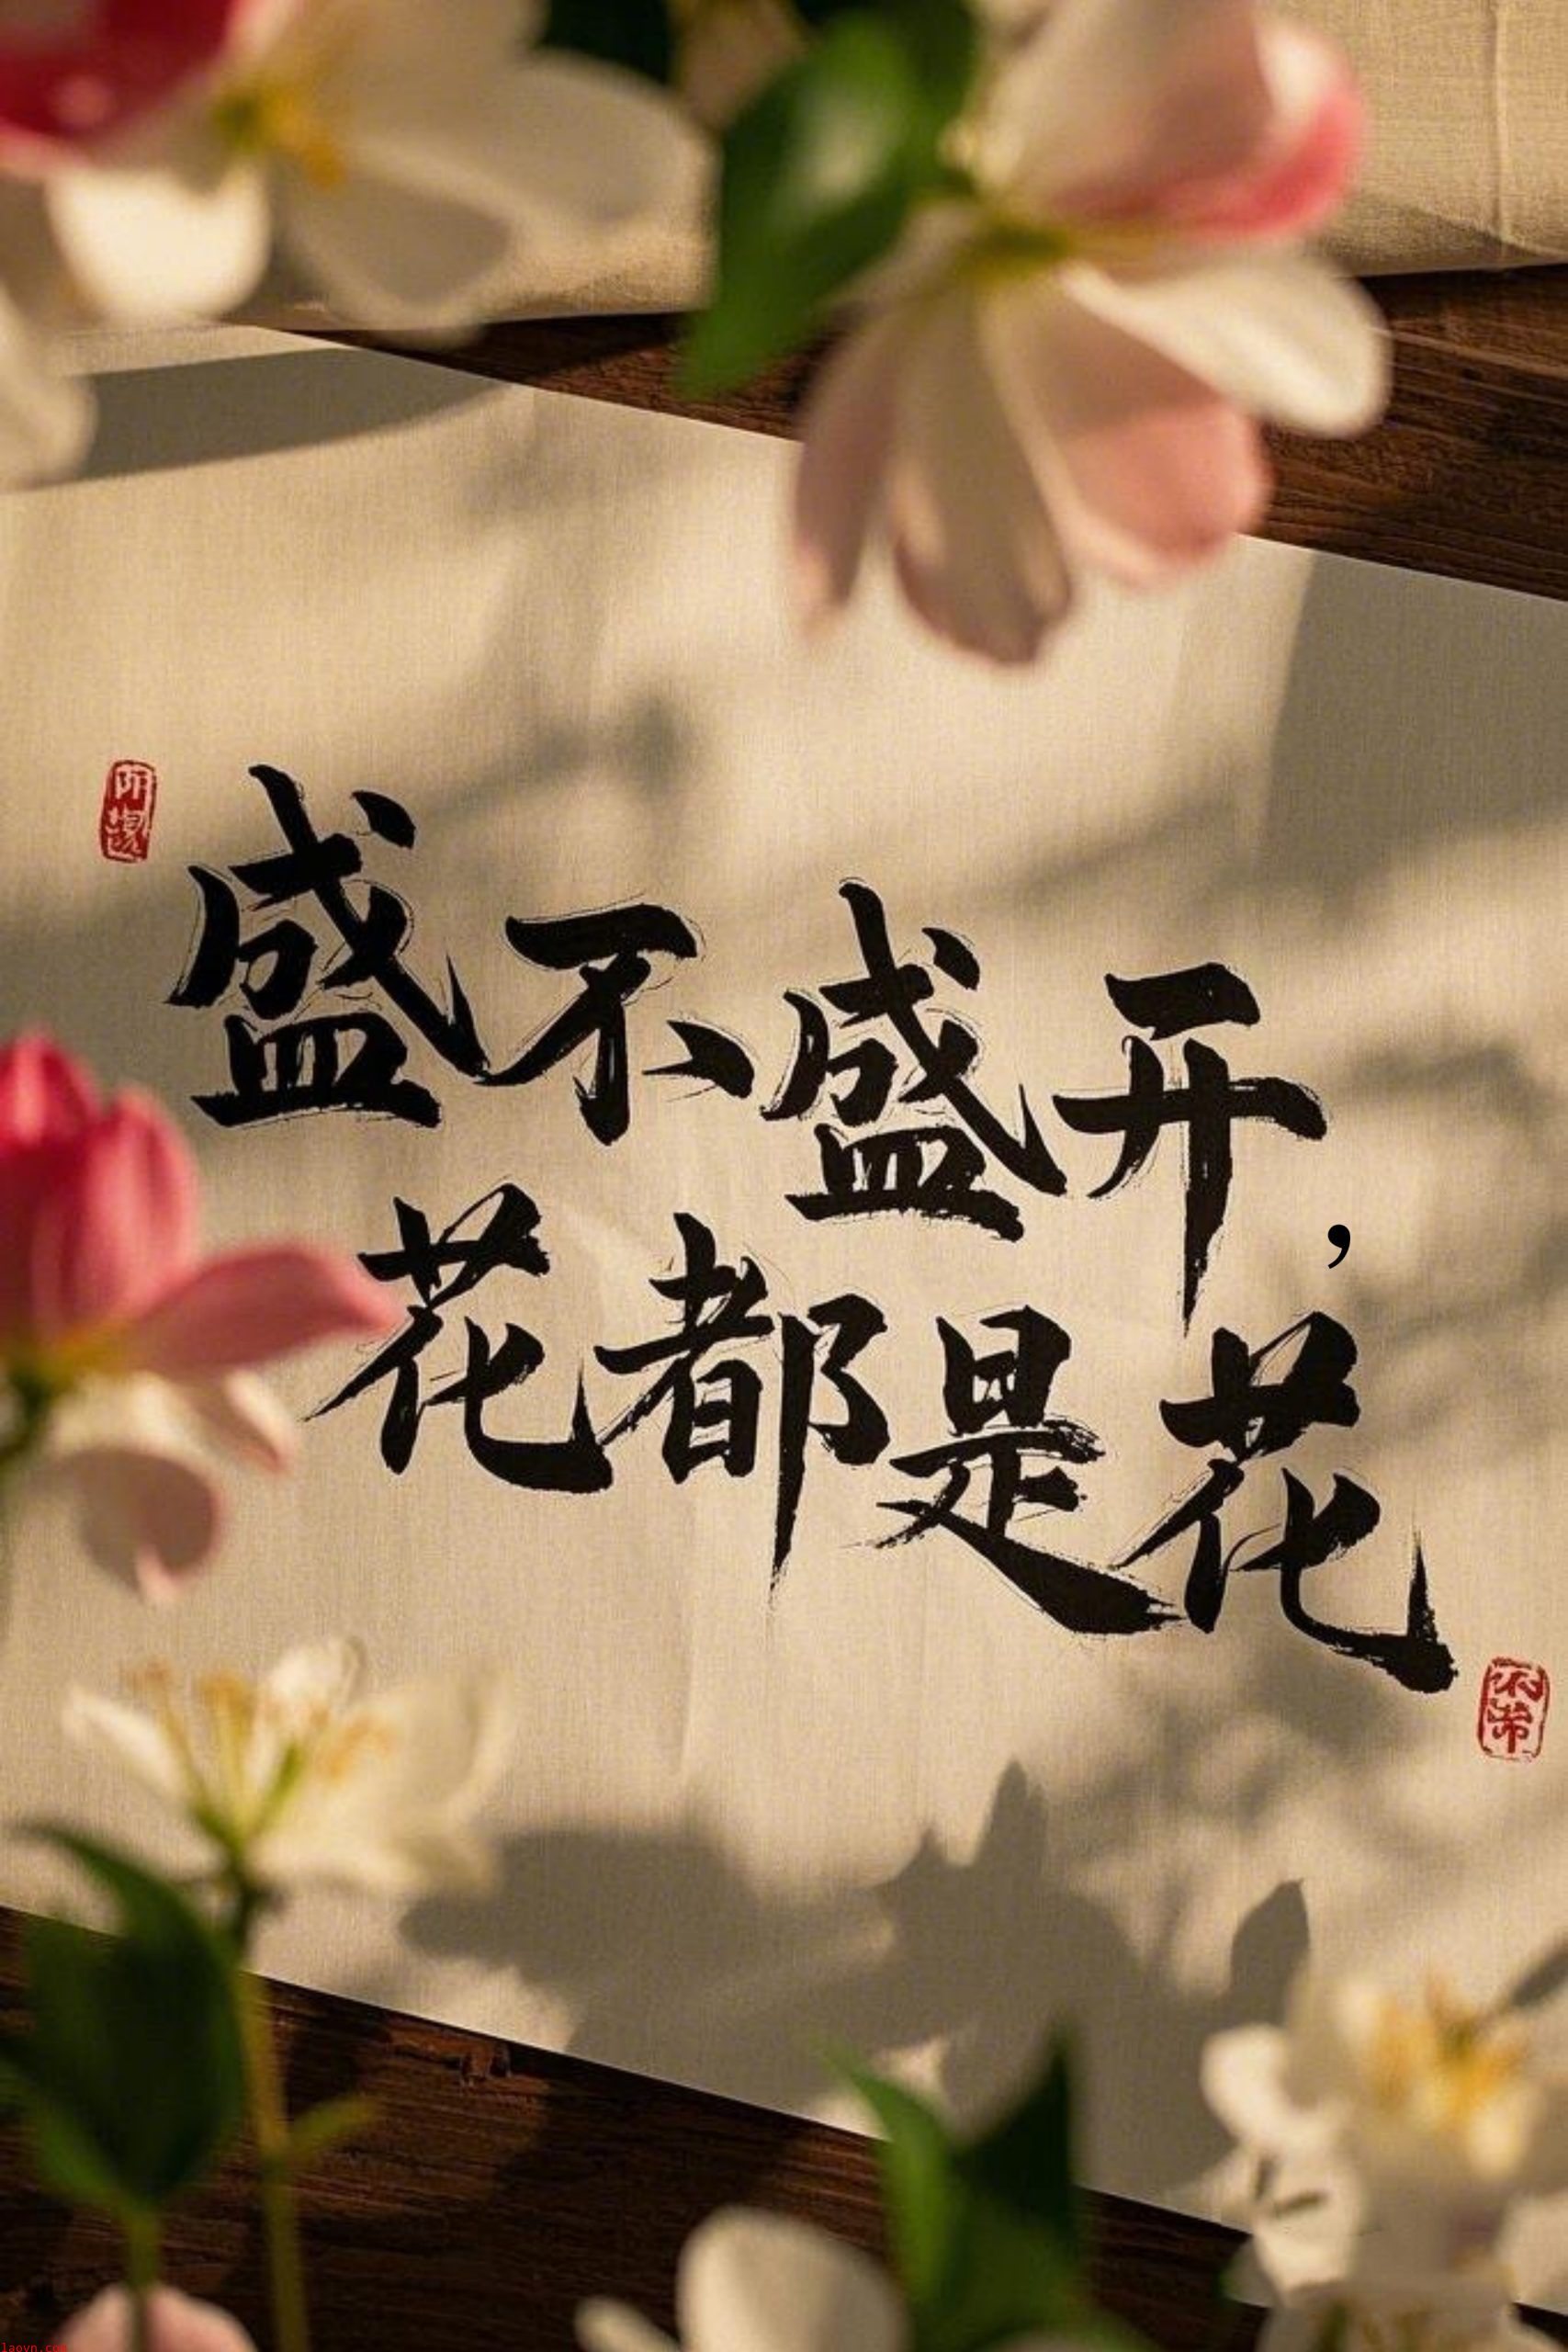 盛不盛开，
花都是花
laovn.com